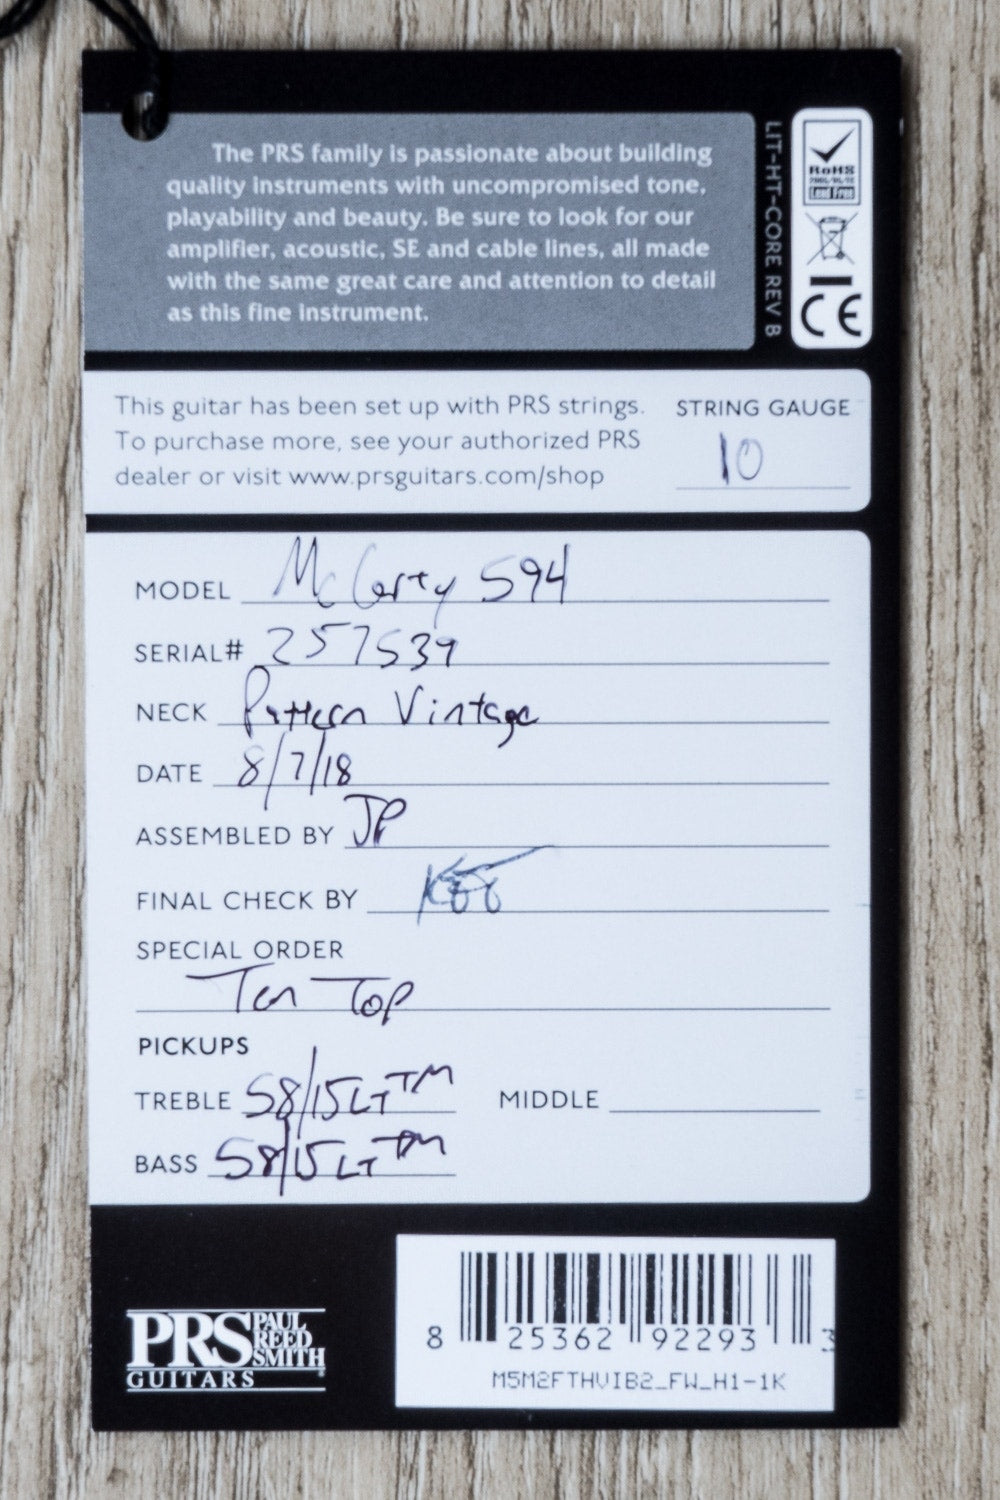 The PRS family is passionate about building
quality instruments with uncompromised tone,
playability and beauty. Be sure to look for our
amplifier, acoustic, SE and cable lines, all made
with the same great care and attention to detail
as this fine instrument.
LIT-HT-CORE REV B
RoHS
Lead Free
CE
This guitar has been set up with PRS strings.
To purchase more, see your authorized PRS
dealer or visit www.prsguitars.com/shop
STRING GAUGE
10
MODEL McCarty 594
SERIAL# 257539
NECK Pattern Vintage
DATE 8/7/18
ASSEMBLED BY JP
FINAL CHECK BY
SPECIAL ORDER
Ten Top
PICKUPS
TREBLE 58/15LT TM MIDDLE
BASS 58/15LT TM
PRS PAUL REED SMITH
GUITARS
8 25362 92293 3
M5M2FTHVIB2_FW_H1-1K